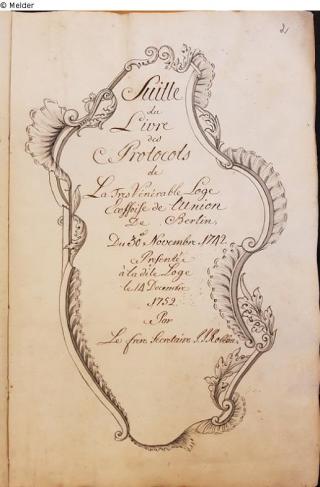 © Melder
2
Suitte
du
Livre
des
Protocols
de
La Tres Vénérable Loge
Ecossoise de l'Union
De Berlin,
Du 30 Novembre 1742
Presentée
à la dite Loge
le 14 Decembre
1752.
Par
Le frere Secretaire